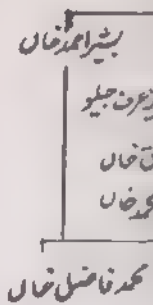 بشیر احمد خاں
عرف جیلو
خاں
خاں
محمد فاضل خاں